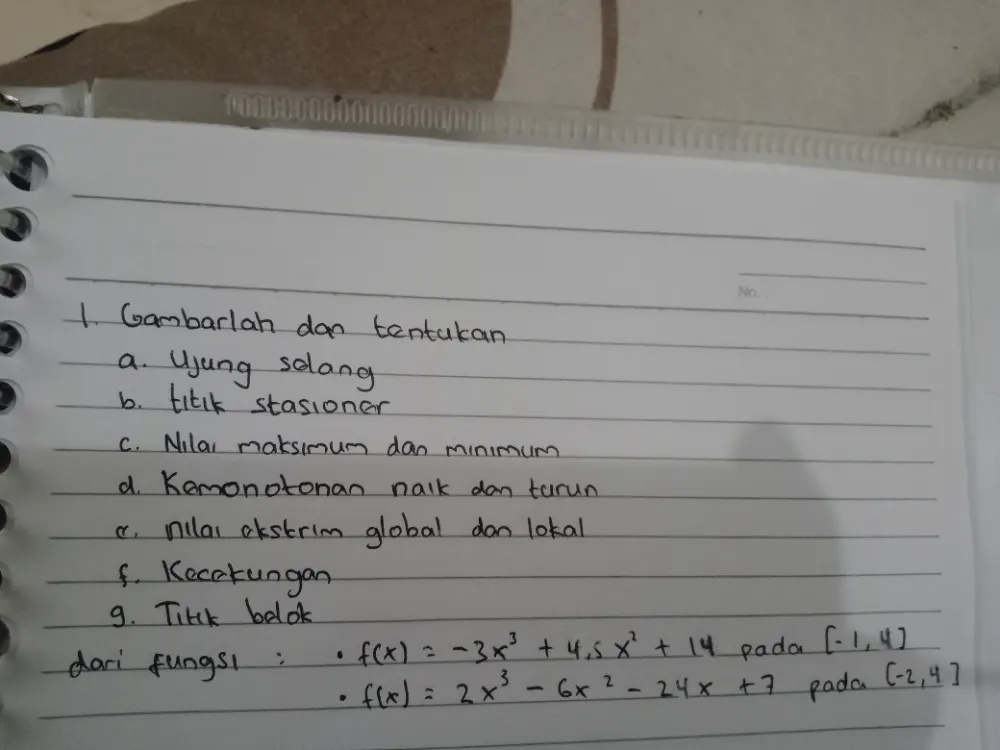 No.
1. Gambarlah dan tentukan
a. Ujung selang
b. titik stasioner
c. Nilai maksimum dan minimum
d. Kemonotonan naik dan turun
e. nilai ekstrim global dan lokal
f. Kecekungan
g. Titik belok
dari fungsi : • f(x) = -3x³ + 4,5x² + 14 pada [-1,4]
• f(x) = 2x³ - 6x² - 24x + 7 pada [-2,4]